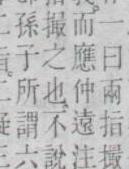 一曰兩指撮
而應仲遠注
撮之也不說
孫子所謂六